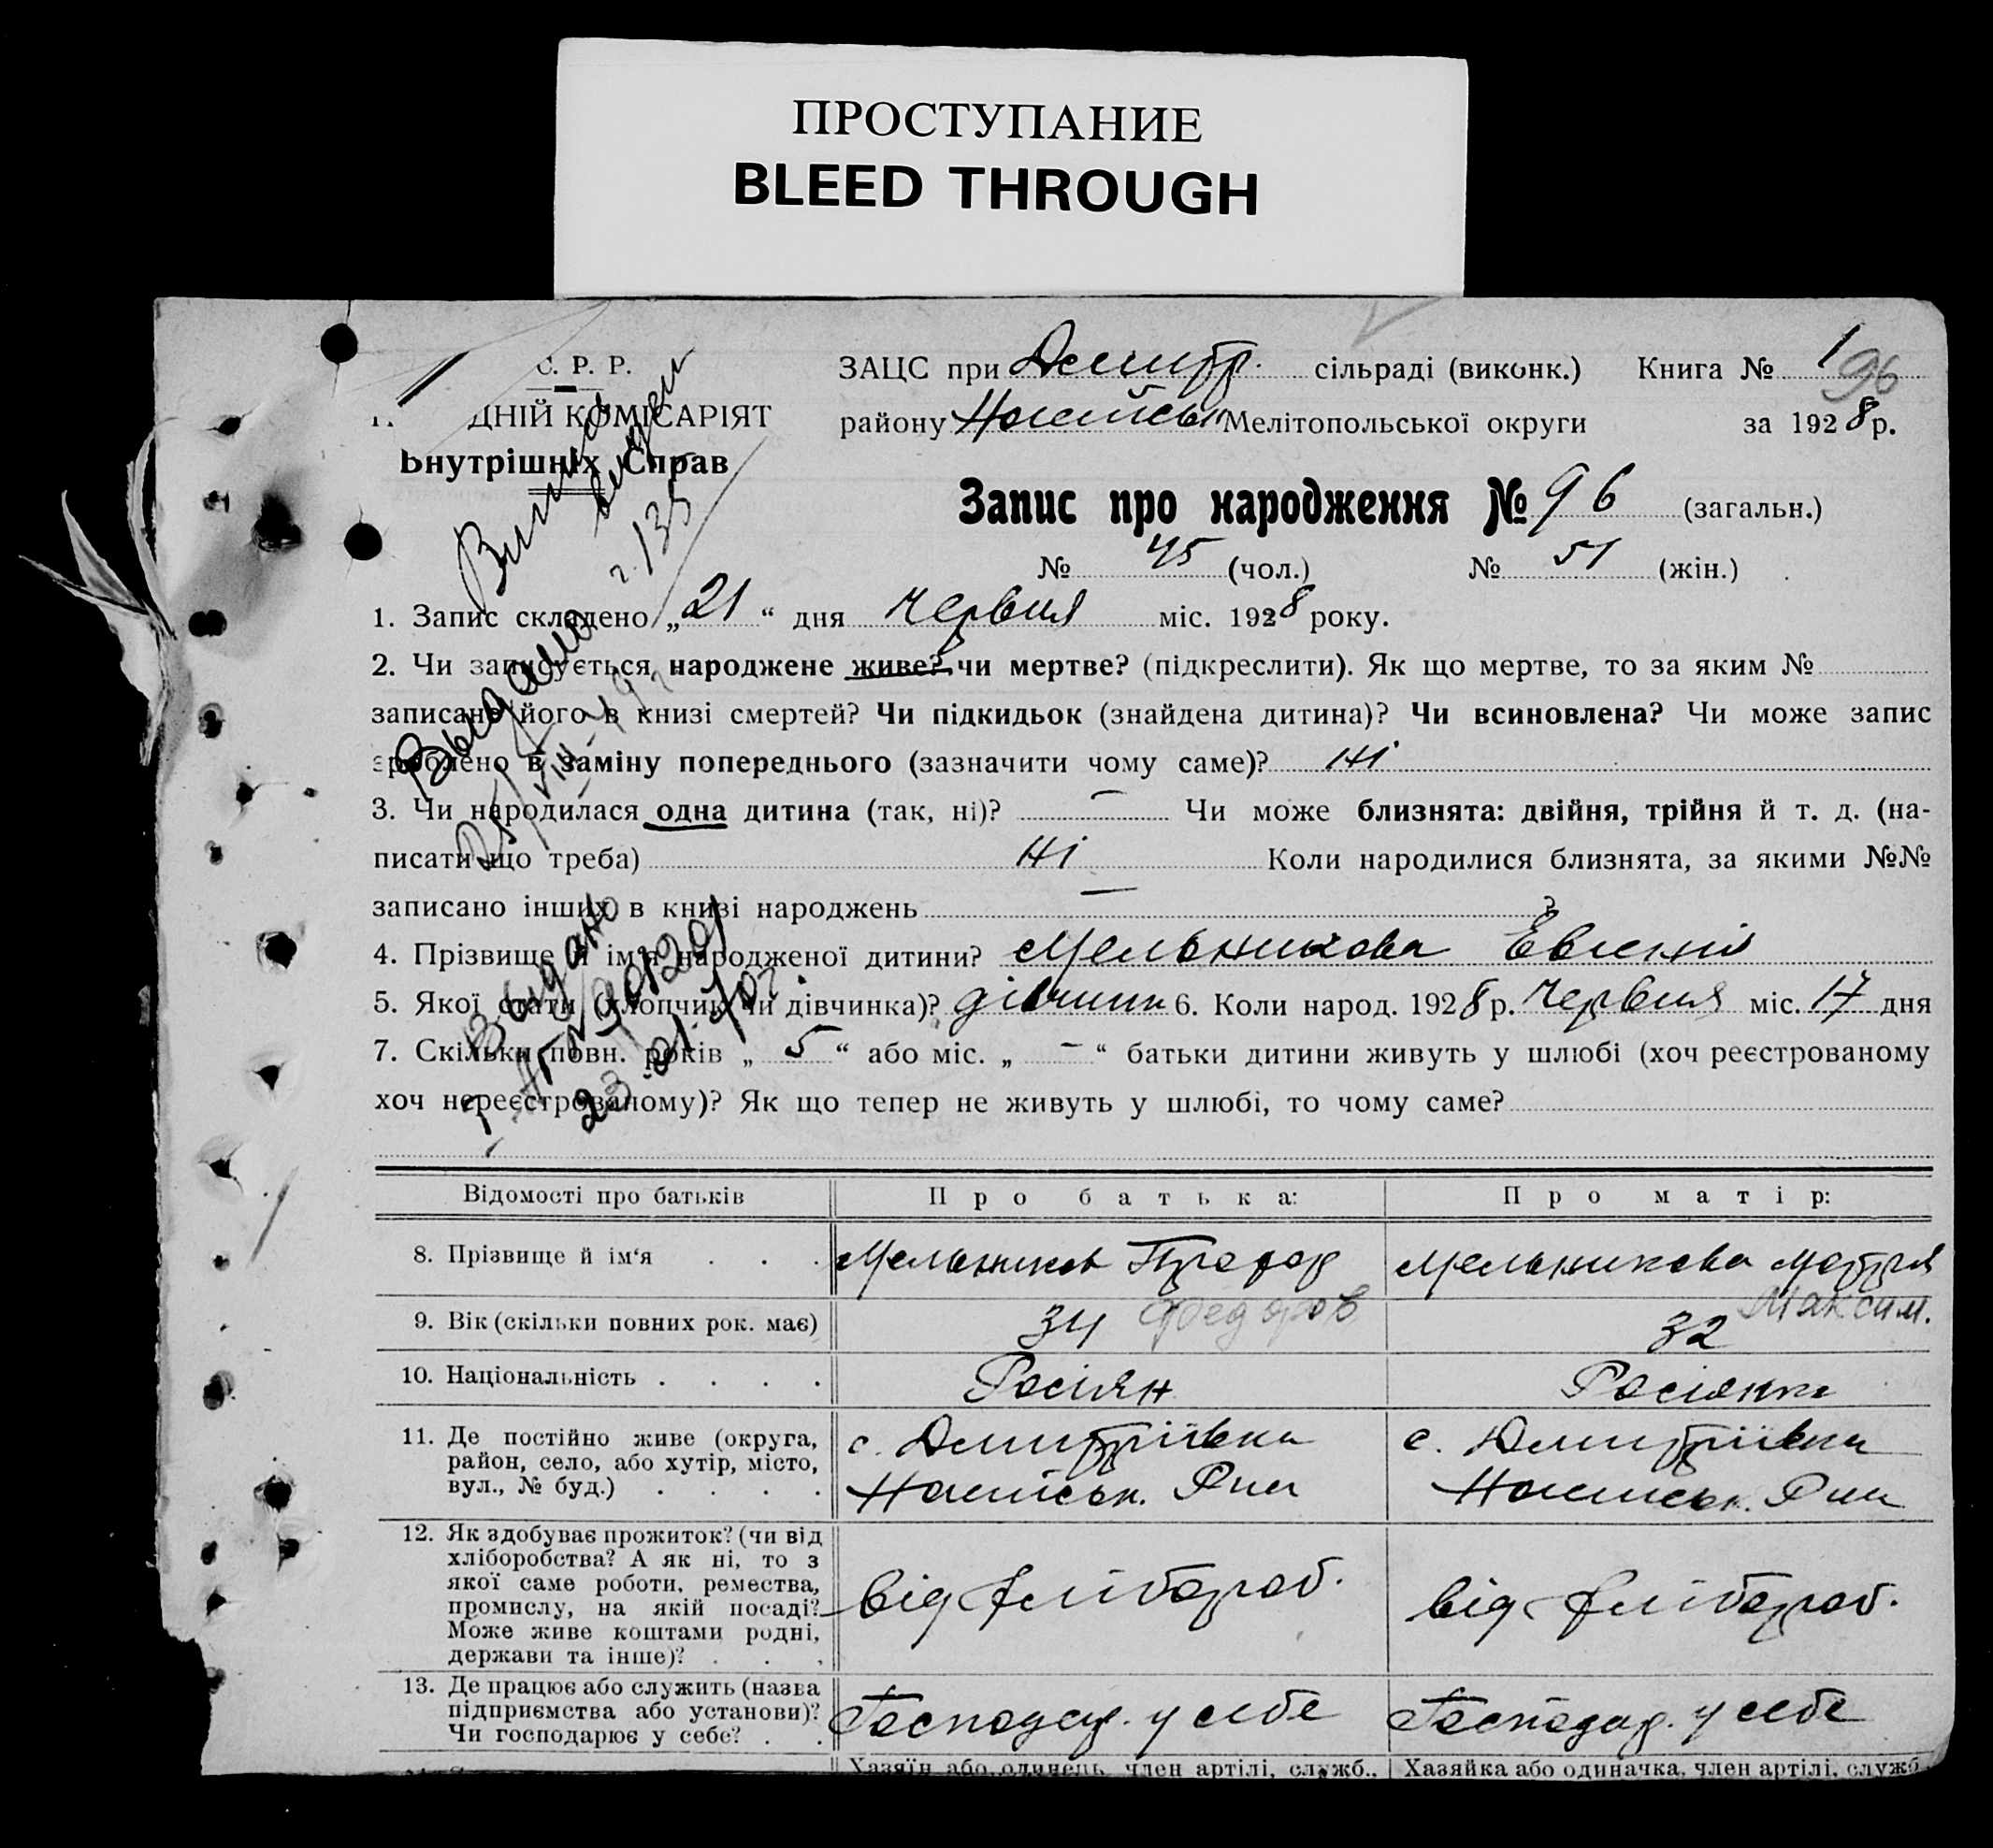 ПРОСТУПАНИЕ
BLEED THROUGH
С. Р. Р.
ДНІЙ КОМІСАРІЯТ
Внутрішніх Справ
ЗАЦС при Дмитр. сільраді (виконк.) Книга № 1
96
району Мелітопольської округи за 1928 р.
Запис про народження № 96 (загальн.)
№ 45 (чол.) № 51 (жін.)
1. Запис складено „21“ дня Червня міс. 1928 року.
2. Чи записується народжене живе? чи мертве? (підкреслити). Як що мертве, то за яким №
записано його в книзі смертей? Чи підкидьок (знайдена дитина)? Чи всиновлена? Чи може запис
зроблено в заміну попереднього (зазначити чому саме)? Ні
3. Чи народилася одна дитина (так, ні)? — Чи може близнята: двійня, трійня й т. д. (на-
писати що треба) Ні Коли народилися близнята, за якими №№
записано інших в книзі народжень — ?
4. Прізвище й ім'я народженої дитини? Мельникова Евгенія
5. Якої стати (хлопчик чи дівчинка)? дівчинк 6. Коли народ. 1928 р. Червня міс. 17 дня
7. Скільки повн. років „ 5 “ або міс. „ – “ батьки дитини живуть у шлюбі (хоч реєстрованому
хоч нереєстрованому)? Як що тепер не живуть у шлюбі, то чому саме?
Выдано
Видано
23.01.
Відомості про батьків Про батька: Про матір:
8. Прізвище й ім‘я . . . Мельников Мельникова Мотря
Федоров Максим.
9. Вік (скільки повних рок. має) 34 32
10. Національність . . . . Росіян Росіянка
11. Де постійно живе (округа,
район, село, або хутір, місто,
вул., № буд.) . . . .
с. Дмитріївка
с. Дмитріївка
12. Як здобуває прожиток? (чи від
хліборобства? А як ні, то з
якої саме роботи, ремества,
промислу, на якій посаді?
Може живе коштами родні,
держави та інше)? . . .
від хлібороб.
від хлібороб.
13. Де працює або служить (назва
підприємства або установи)?
Чи господарює у себе? . .
Господар. у себе
Господар. у себе
Хазяїн або одинець, член артілі, служб., Хазяйка або одиначка, член артілі, служб.